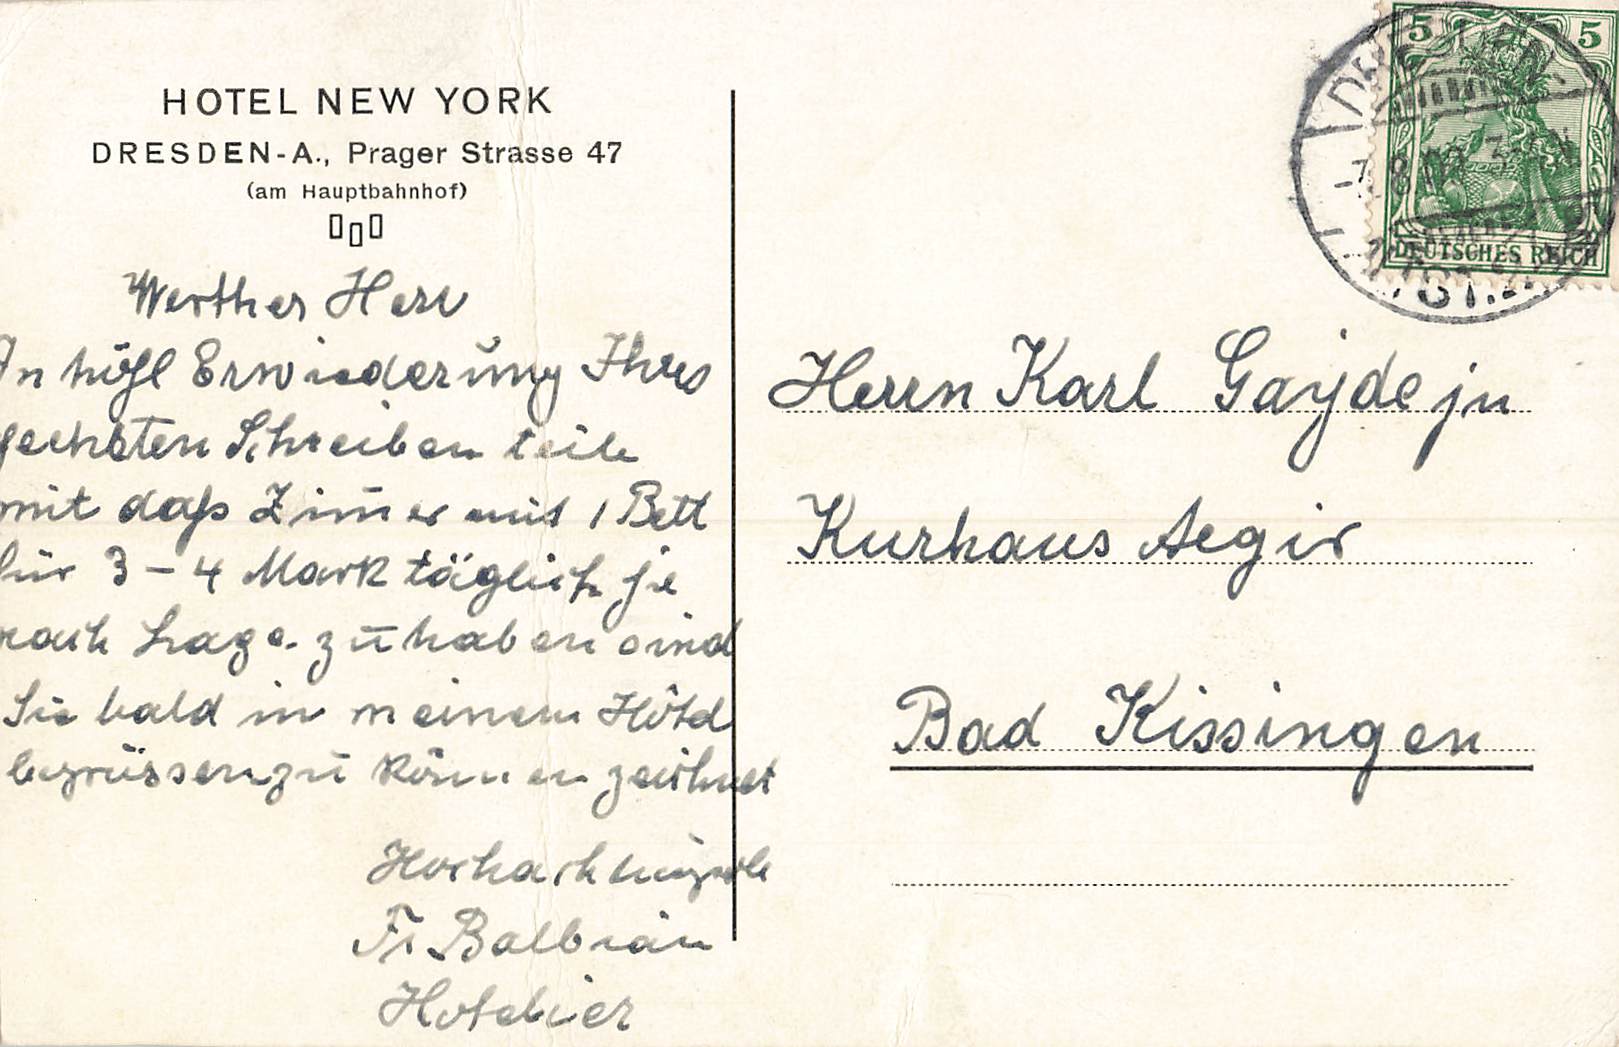 HOTEL NEW YORK
DRESDEN-A., Prager Strasse 47
(am Hauptbahnhof)
Werther Herr
In höfl Erwiederung Ihres
geehrten Schreiben teile
mit daß Zimer mit 1 Bett
für 3 – 4 Mark täglich je
nach Lage. zu haben sind
Sie bald in meinem Hôtel
begrüssen zu könen zeichnet
Hochachtungsvoll
Fr Balbian
Hotelier
5 5
DEUTSCHES REICH
DRESDEN
Herrn Karl Gayde jn
Kurhaus Aegir
Bad Kissingen